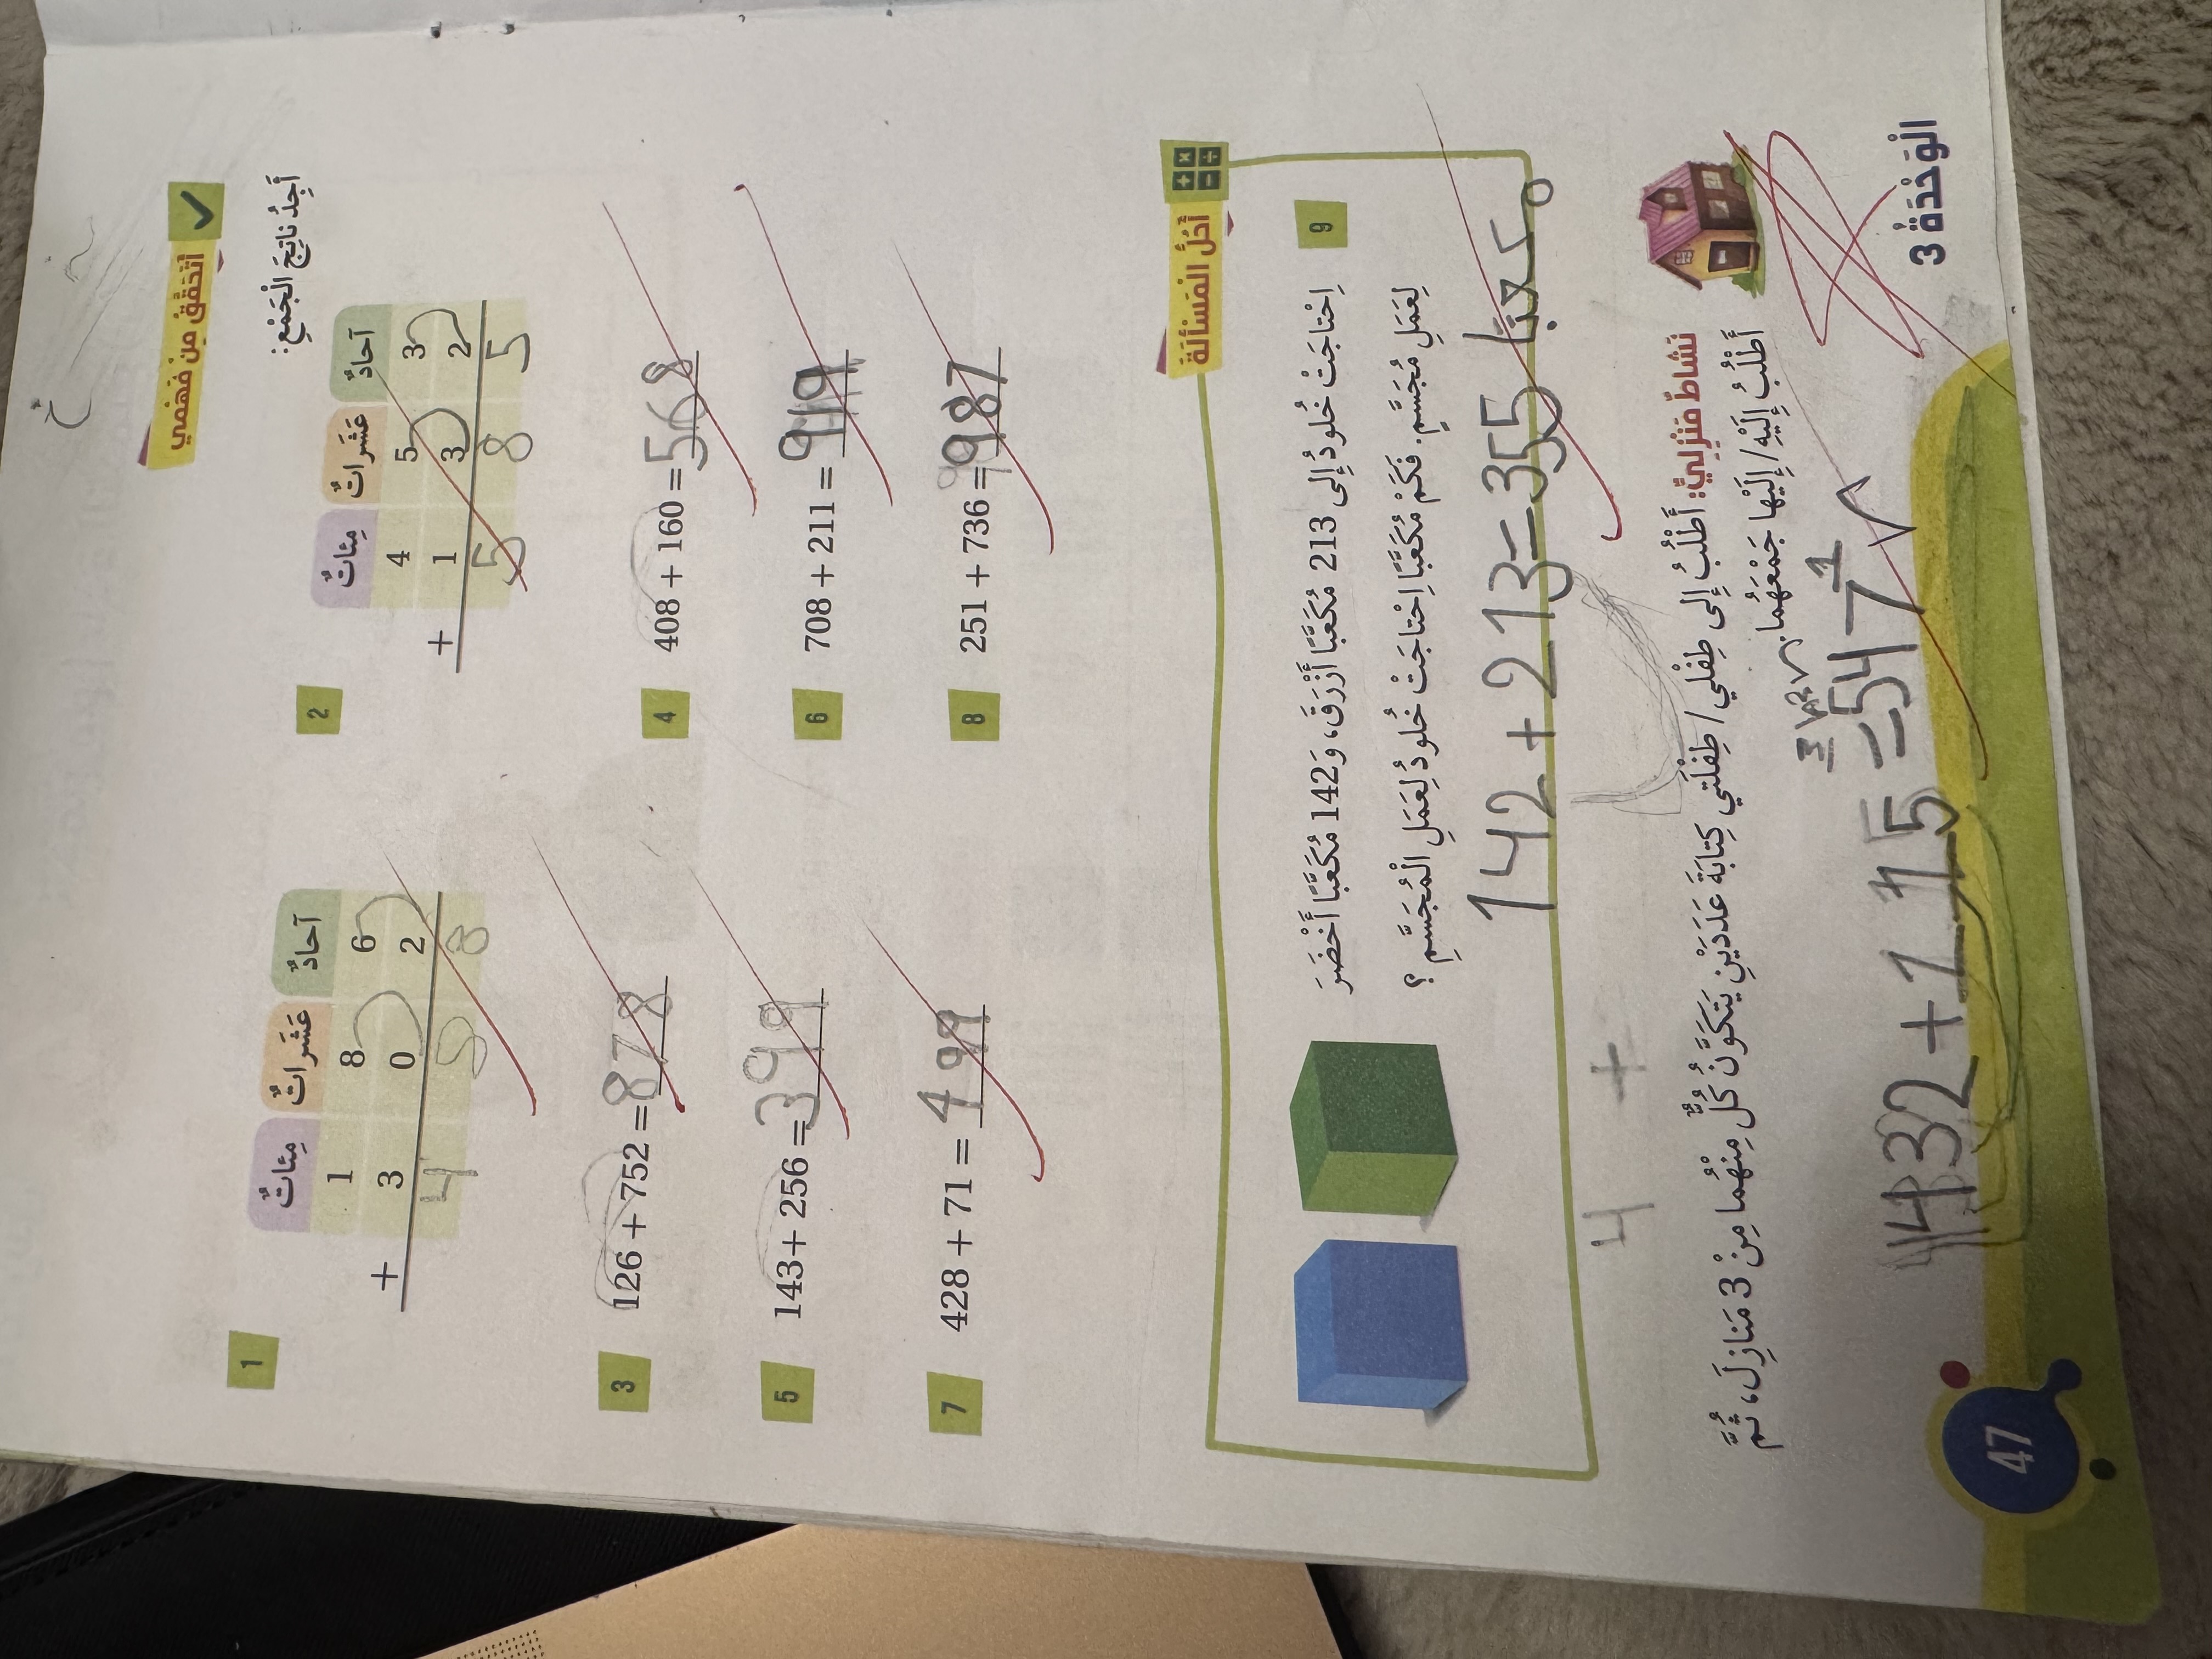 أَتَحَقَّقُ مِنْ فَهْمي
أَجِدُ ناتِجَ الْجَمْعِ:
1
مِئاتٌ عَشَراتٌ آحادٌ
1 8 6
+ 3 0 2
4 8
2
مِئاتٌ عَشَراتٌ آحادٌ
4 5 3
+ 1 3 2
5 8 5
3 126 + 752 = 878
4 408 + 160 = 568
5 143 + 256 = 399
6 708 + 211 = 919
7 428 + 71 = 499
8 251 + 736 = 987
أَحُلُّ الْمَسْأَلَةَ
9 اِحْتاجَتْ خُلودُ إِلى 213 مُكَعَّبًا أَزْرَقَ، وَ142 مُكَعَّبًا أَخْضَرَ
لِعَمَلِ مُجَسَّمٍ. فَكَمْ مُكَعَّبًا اِحْتاجَتْ خُلودُ لِعَمَلِ الْمُجَسَّمِ ؟
142 + 213 = 355 مكعبا
4 +
نَشاطٌ مَنْزِلِيٌّ: أَطْلُبُ إِلى طِفْلي / طِفْلَتي كِتابَةَ عَدَدَيْنِ يَتَكَوَّنُ كُلٌّ مِنْهُما مِنْ 3 مَنازِلَ، ثُمَّ
أَطْلُبُ إِلَيْهِ/ إِلَيْها جَمْعَهُما.
432 + 115 = 547
47
الْوَحْدَةُ 3